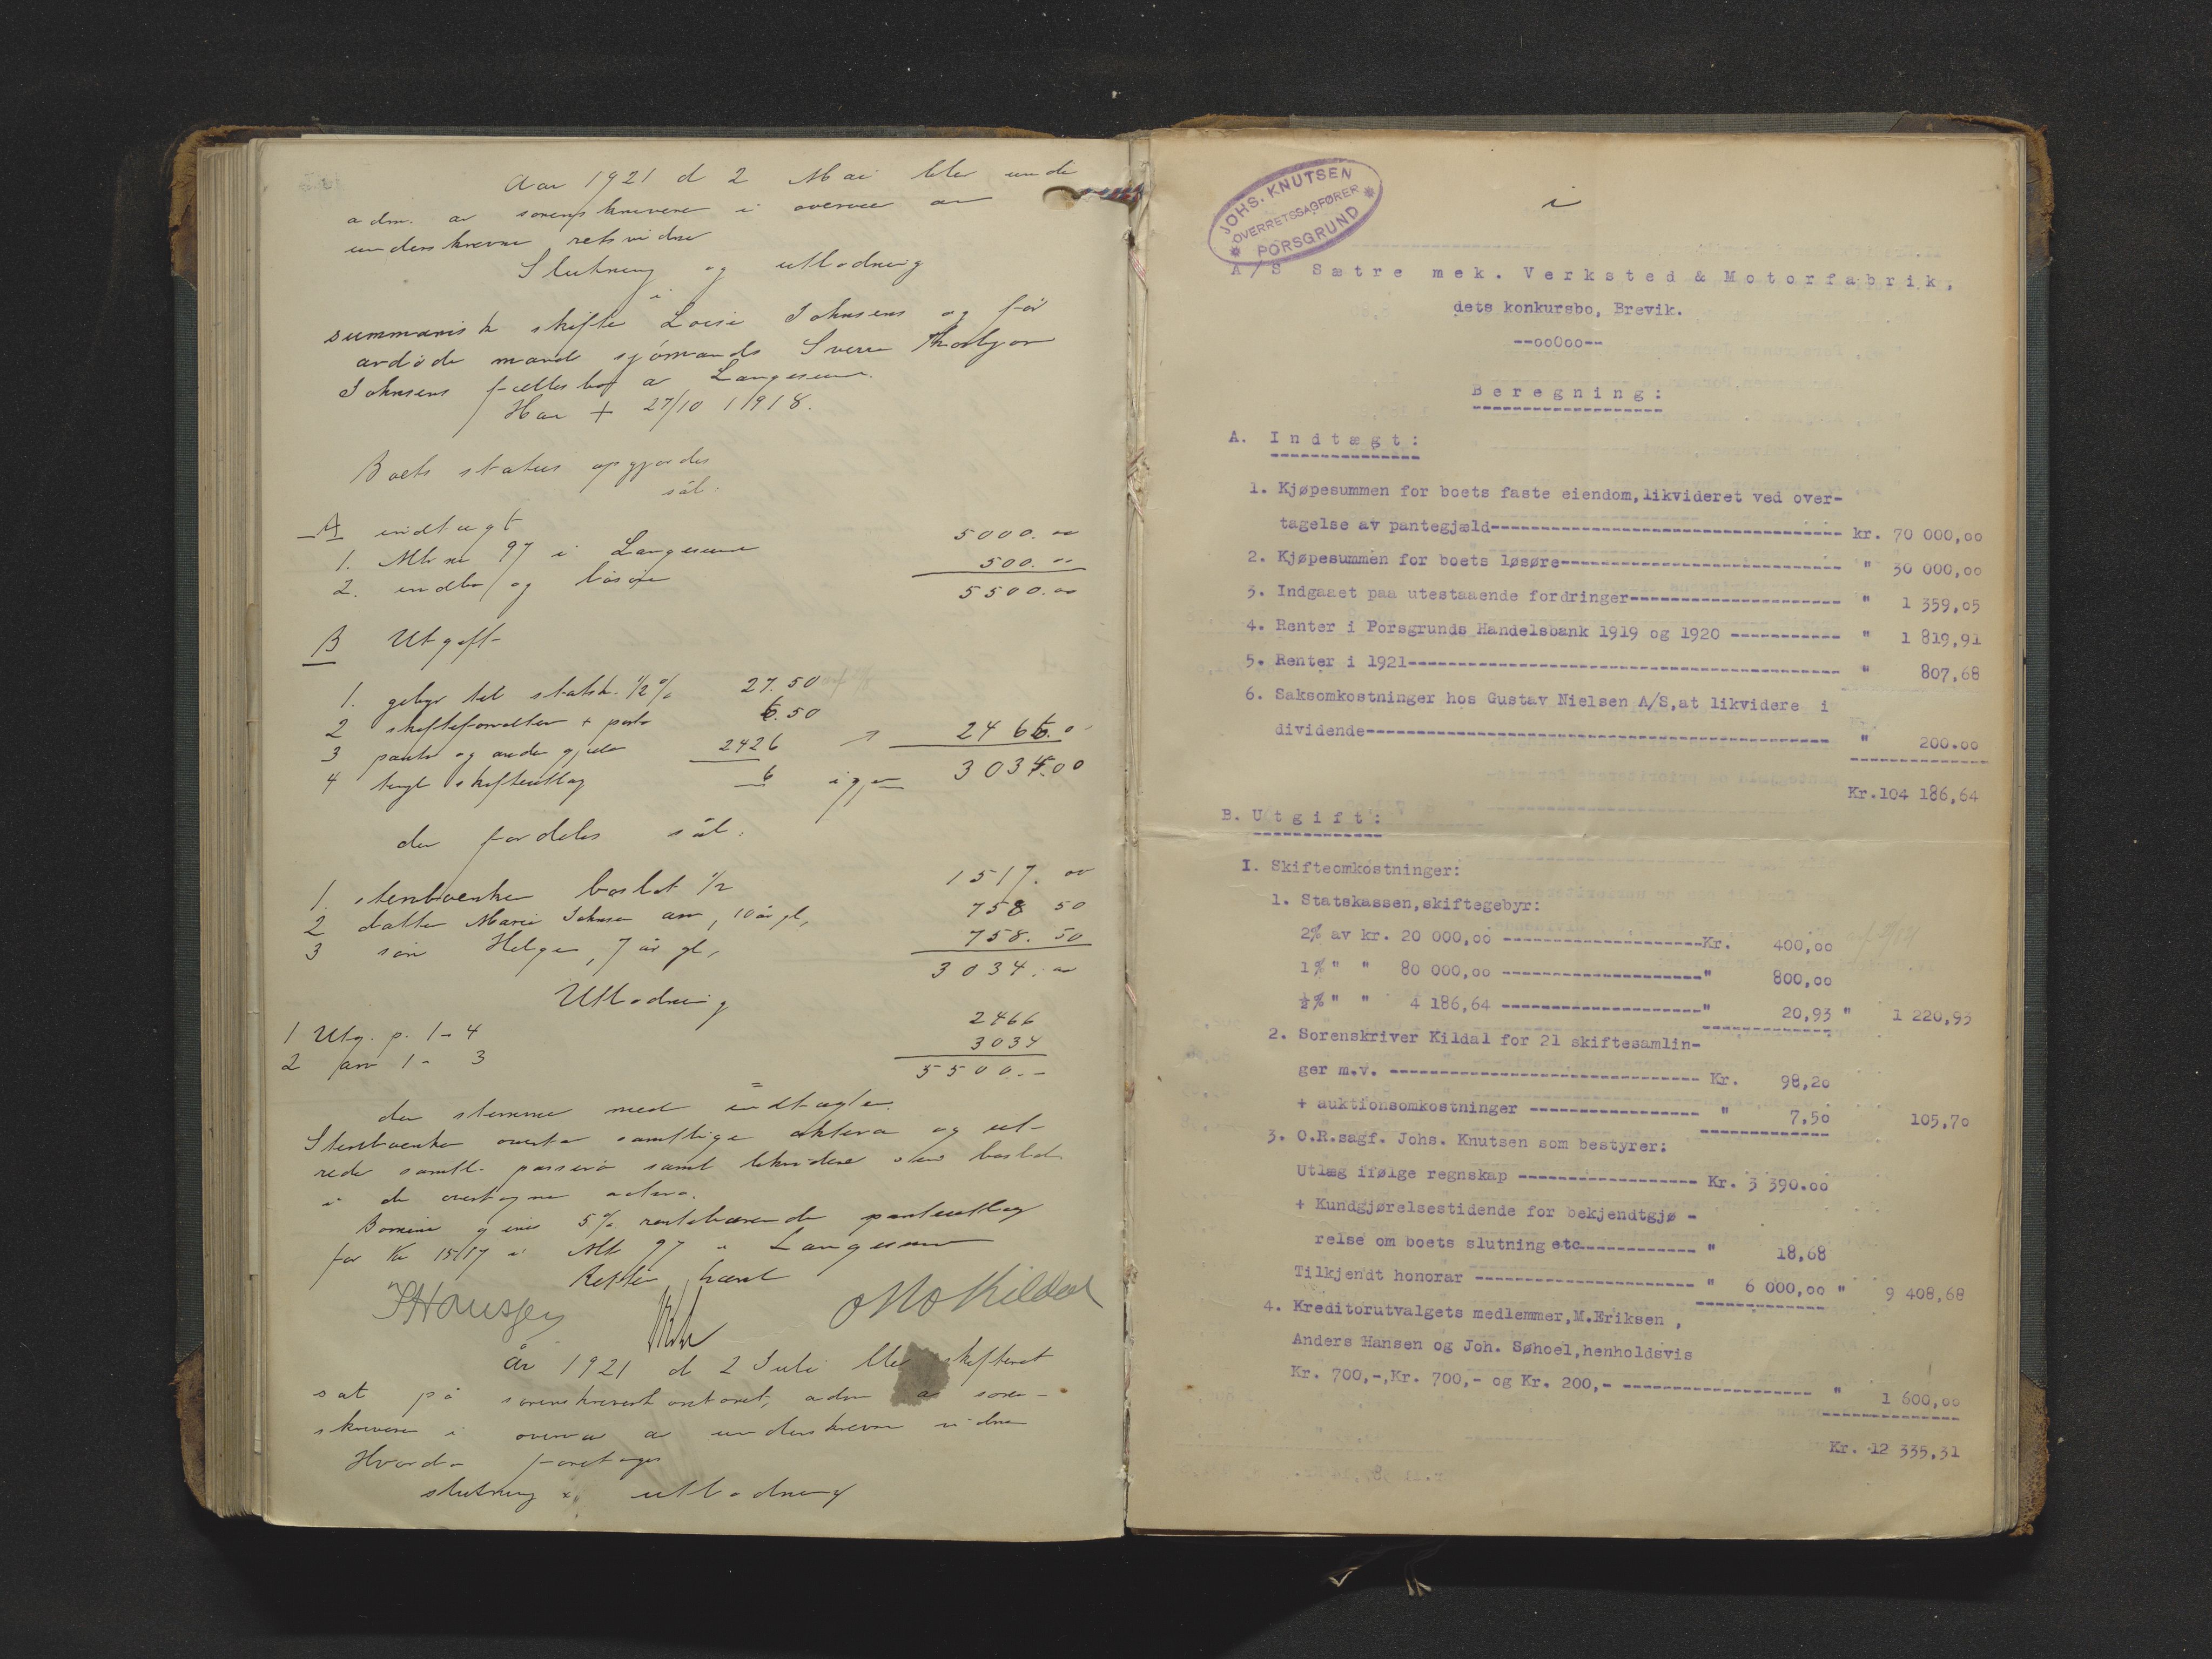 Aar 1921 d 2 Mai ble unde
adm. av sorenskriveren i overvær av
underskrevne retsvidne
Slutning og utlodning
i
summarisk skifte Lovise Johnsens og før
avdøde mand sjømands Sverre Thorbjørn
Johnsens fællesbo av Langesund.
Han + 27/10 1918.
Boets status opgjordes
sål:
A indtægt
1. Mtr no 97 i Langesund 5000.00
2. indbo og løsøre 500.00
5500.00
B Utgift
1. gebyr til statsk. 1/2 % 27.50
2 skifteforvalter + porto 6.50
3 pante og anden gjæld 2426
4 tingl skifteutlæg 6 2466.0
igjen 3034.00
der fordeles sål:
1. stervboenken boslod 1/2 1517.00
2 datter Marie Johnsen arv, 10 år gl, 758 50
3 søn Helge, 7 år gl, 758.50
3034.00
Utlodning
1 Utg. p. 1-4 2466
2 arv 1-3 3034
5500.-
der stemmer med indtægten.
Stervboenken overtar samtlige aktiva og ut-
reder samtl. passiva samt likviderer sin boslod
i de overtagne activa.
Barnene gives 5% rentebærende panteutlæg
for Kr 1517 i Mtr 97 i Langesund
Retten hævet
JHanssen Otto Kildal
År 1921 d 2 Juli blev skifteret
sat på sorenskriverkontoret, adm av soren-
skriveren i overvær av underskrevne vidne
Hvorda foretages
slutning og utlodning
JOHS. KNUTSEN
OVERRETSSAGFØRER
PORSGRUND
i
A/S Sætre mek. Verksted & Motorfabrik,
dets konkursbo, Brevik.
--ooOoo--
Beregning:
A. Indtægt:
1. Kjøpesummen for boets faste eiendom,likvideret ved over-
tagelse av pantegjæld--- kr. 70 000,00
2. Kjøpesummen for boets løsøre--- " 30 000,00
3. Indgaaet paa utestaaende fordringer--- " 1 359,05
4. Renter i Porsgrunds Handelsbank 1919 og 1920 --- " 1 819,91
5. Renter i 1921--- " 807,68
6. Saksomkostninger hos Gustav Nielsen A/S,at likvidere i
dividende--- " 200.00
Kr.104 186,64
B. Utgift:
I. Skifteomkostninger:
1. Statskassen,skiftegebyr:
2% av kr. 20 000,00 ---Kr. 400,00
1% " " 80 000,00 ---" 800,00
½% " " 4 186,64 ---" 20,93 " 1 220,93
2. Sorenskriver Kildal for 21 skiftesamlin-
ger m.v. --- Kr. 98,20
+ auktionsomkostninger --- " 7,50 105,70
3. O.R.sagf. Johs. Knutsen som bestyrer:
Utlæg ifølge regnskap --- Kr. 3 390.00
+ Kundgjørelsestidende for bekjendtgjø -
relse om boets slutning etc--- " 18,68
Tilkjendt honorar --- " 6 000,00 " 9 408,68
4. Kreditorutvalgets medlemmer,M.Eriksen ,
Anders Hansen og Joh. Søhoel,henholdsvis
Kr. 700,-,Kr. 700,- og Kr. 200,- --- " 1 600,00
Kr. 12 335,31